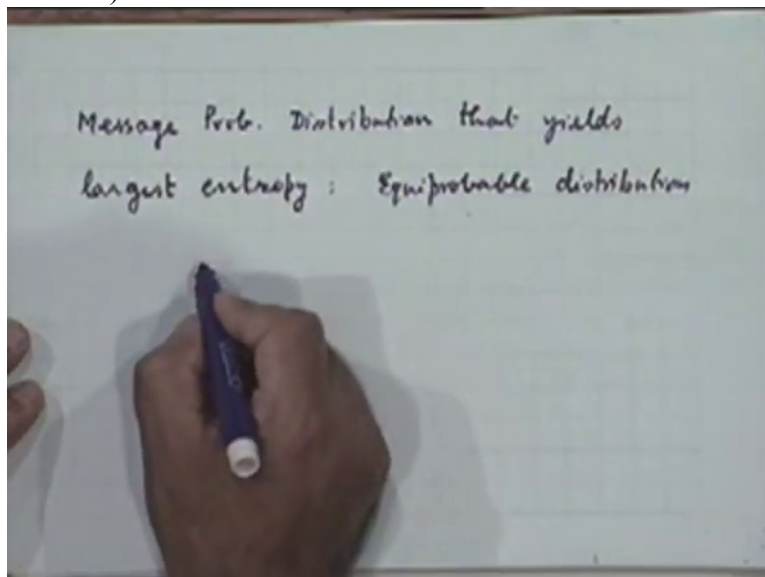 Message Prob. Distribution that yields
largest entropy : Equiprobable distribution